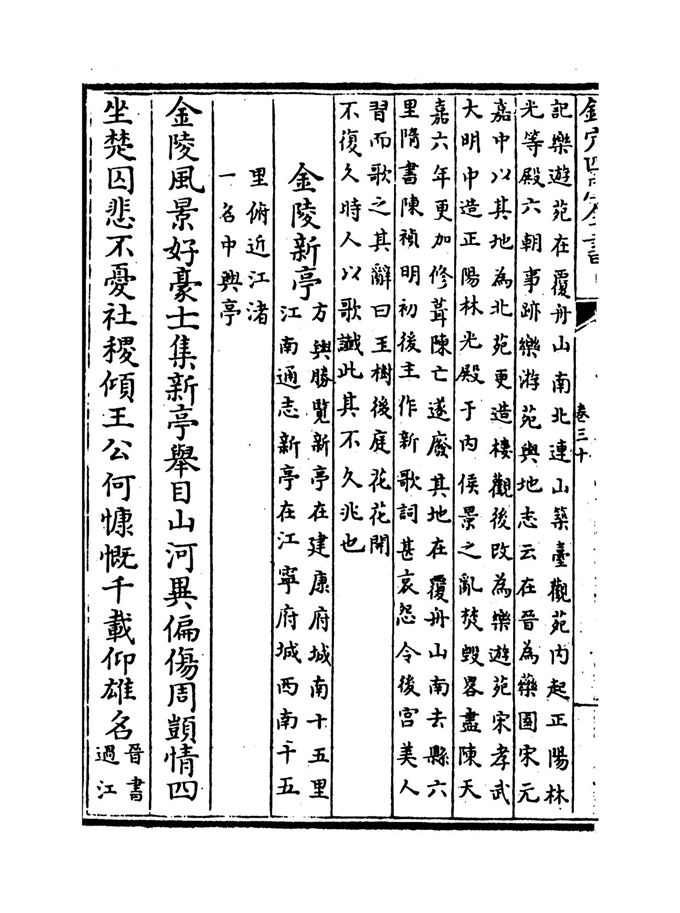 欽定四庫全書
卷三十
記樂遊苑在覆舟山南北連山築臺觀苑內起正陽林
光等殿六朝事跡樂游苑輿地志云在晉為藥園宋元
嘉中以其地為北苑更造樓觀後改為樂遊苑宋孝武
大明中造正陽林光殿于內侯景之亂焚毀畧盡陳天
嘉六年更加修葺陳亡遂廢其地在覆舟山南去縣六
里隋書陳禎明初後主作新歌詞甚哀怨令後宮美人
習而歌之其辭曰玉樹後庭花花開
不復久時人以歌讖此其不久兆也
金陵新亭
方輿勝覽新亭在建康府城南十五里
江南通志新亭在江寧府城西南十五
里俯近江渚
一名中興亭
金陵風景好豪士集新亭舉目山河異偏傷周顗情四
坐楚囚悲不憂社稷傾王公何慷慨千載仰雄名
晉書
過江